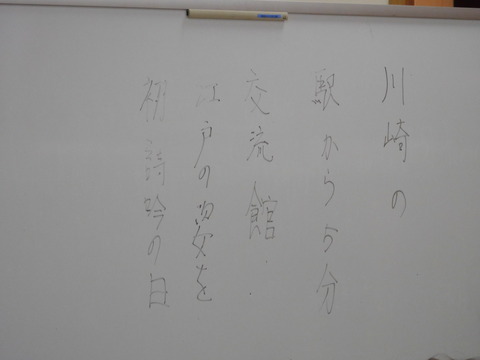 川崎の
駅から5分
交流館
江戸の姿を
初詩吟の日